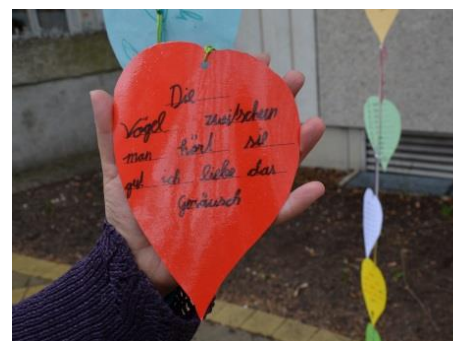 Die
Vögel zwitschern
man hört sie
gut ich liebe das
Geräusch